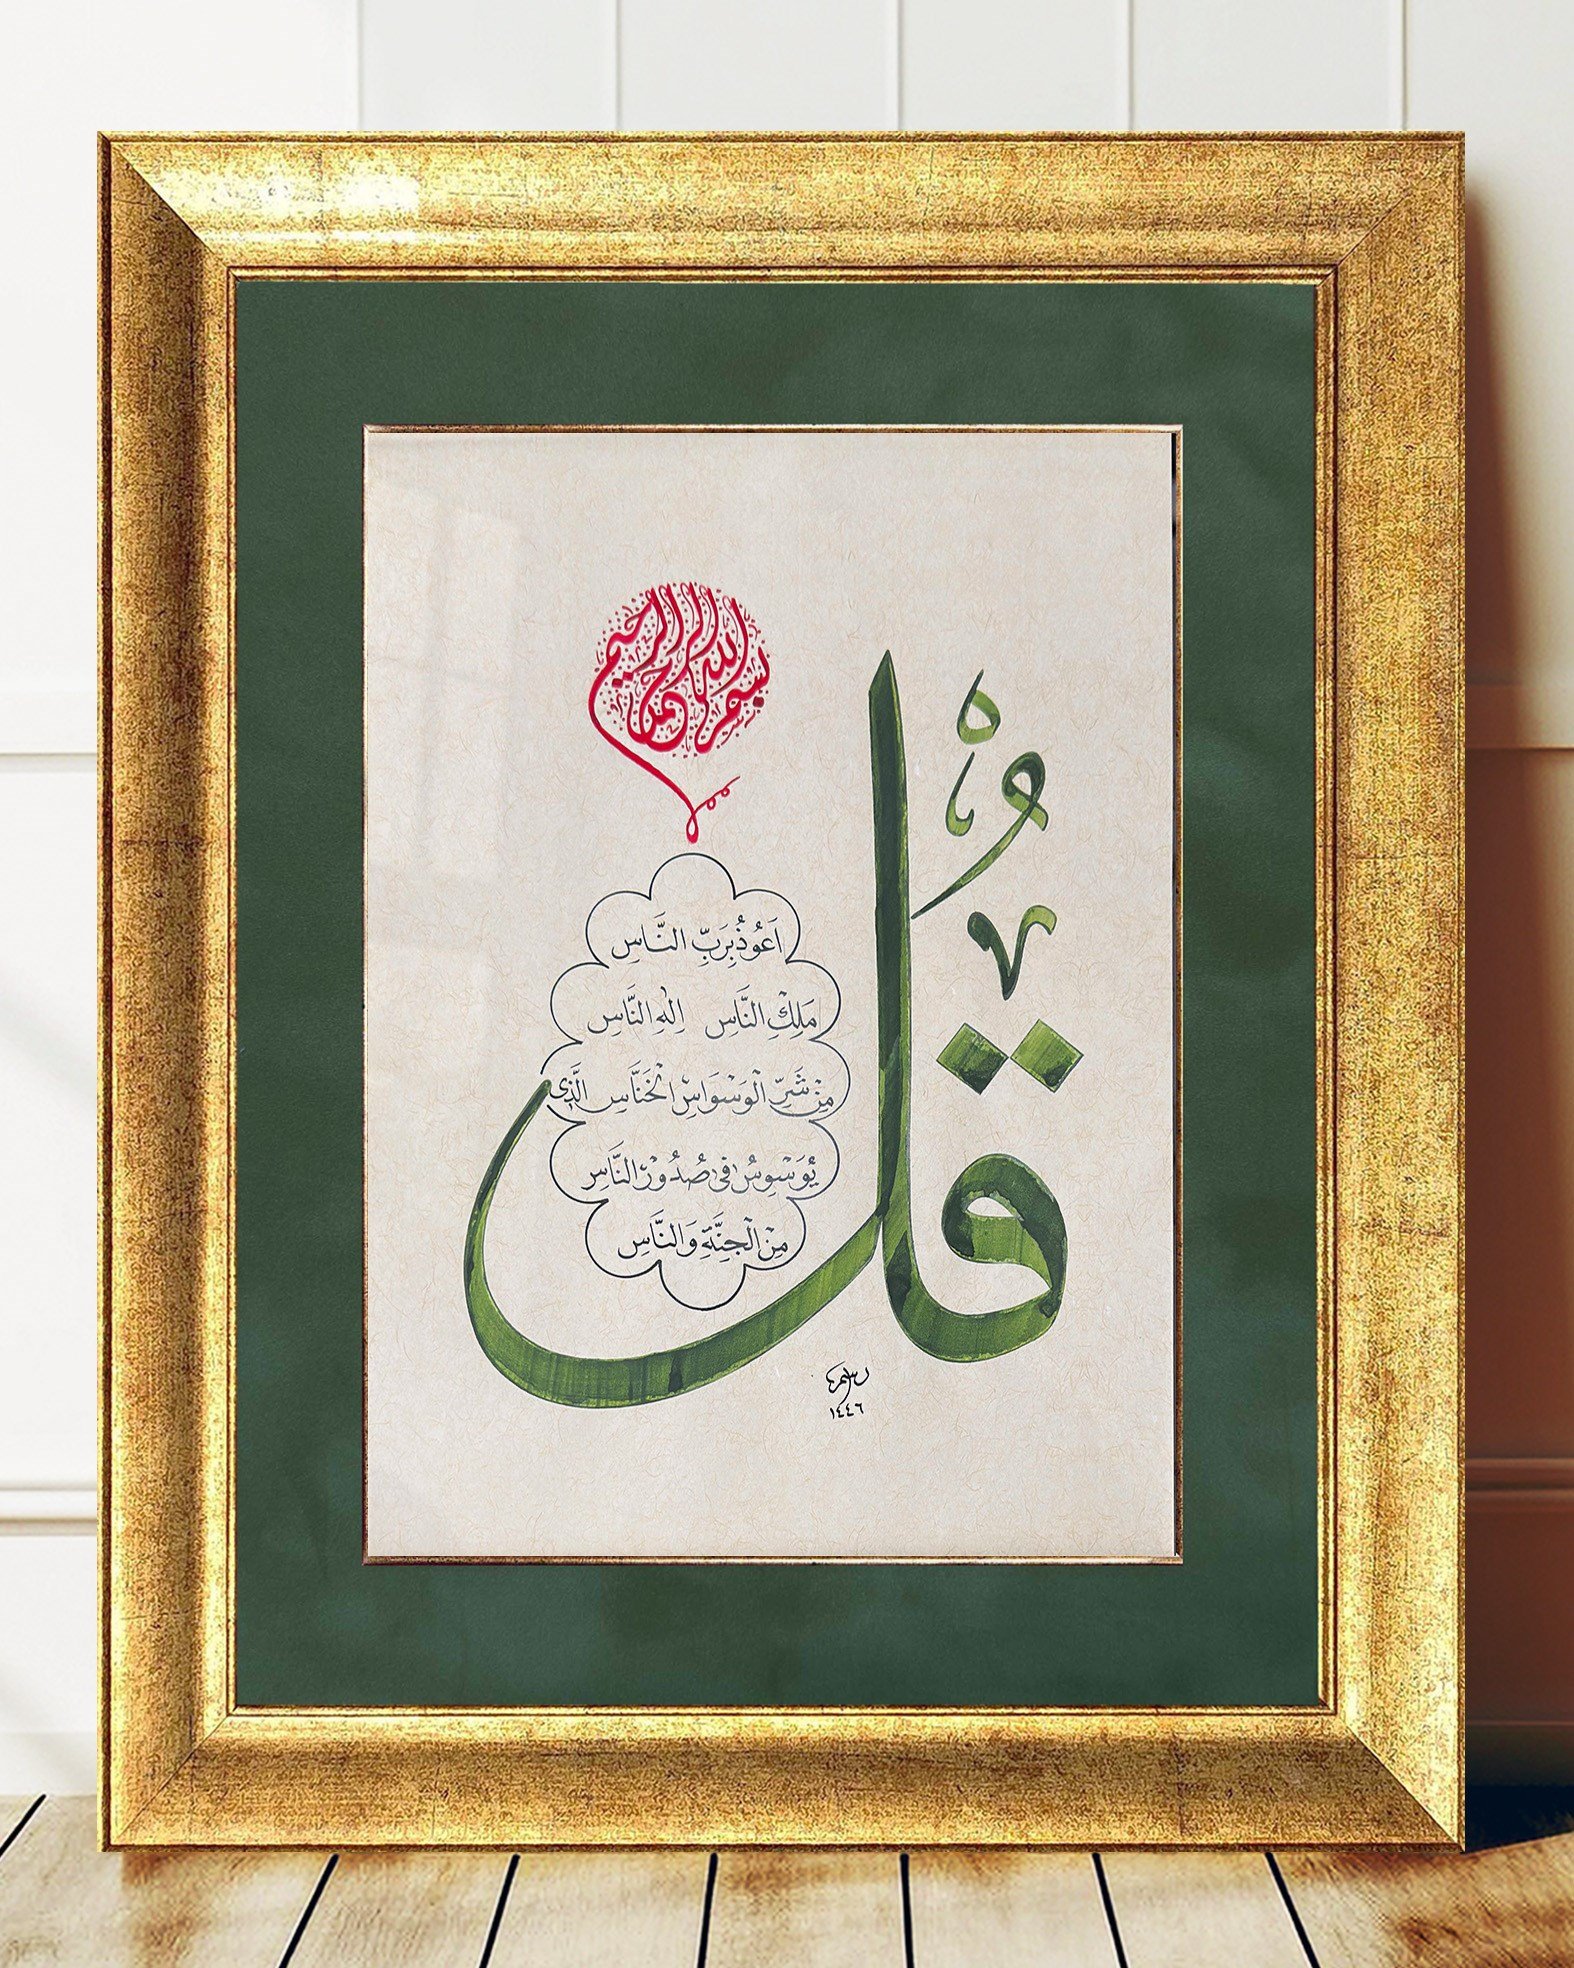 بسم الله الرحمن الرحيم
قُلْ
اَعُوذُ بِرَبِّ النَّاسِ
مَلِكِ النَّاسِ اِلٰهِ النَّاسِ
مِنْ شَرِّ الْوَسْوَاسِ الْخَنَّاسِ الَّذِى
يُوَسْوِسُ فِى صُدُورِ النَّاسِ
مِنَ الْجِنَّةِ وَالنَّاسِ
١٤٤٦